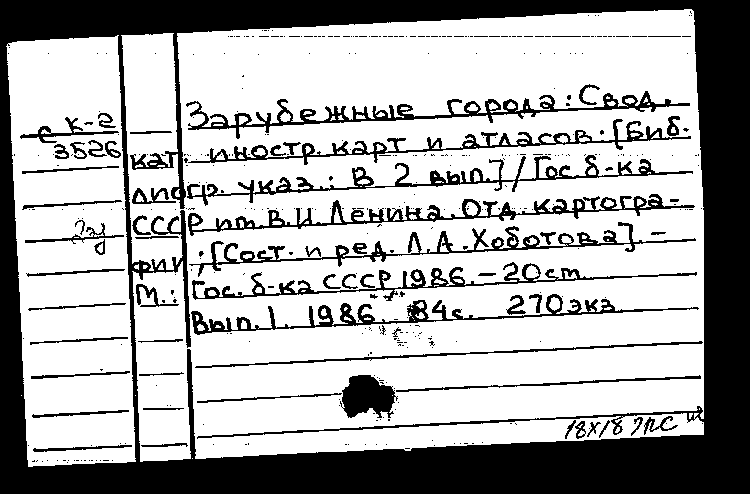 Зарубежные города: Свод.
К-2
С
3526
кат. иностр. карт и атласов: [Биб-
лиогр. указ.: В 2 вып.] / Гос. б-ка
СССР им. В.И. Ленина. Отд. картогра-
фии; [Сост. и ред. Л.А. Хоботова]. -
М.: Гос. б-ка СССР 1986. - 20 см.
Вып. 1. 1986. 84 с. 270 экз.
18X18